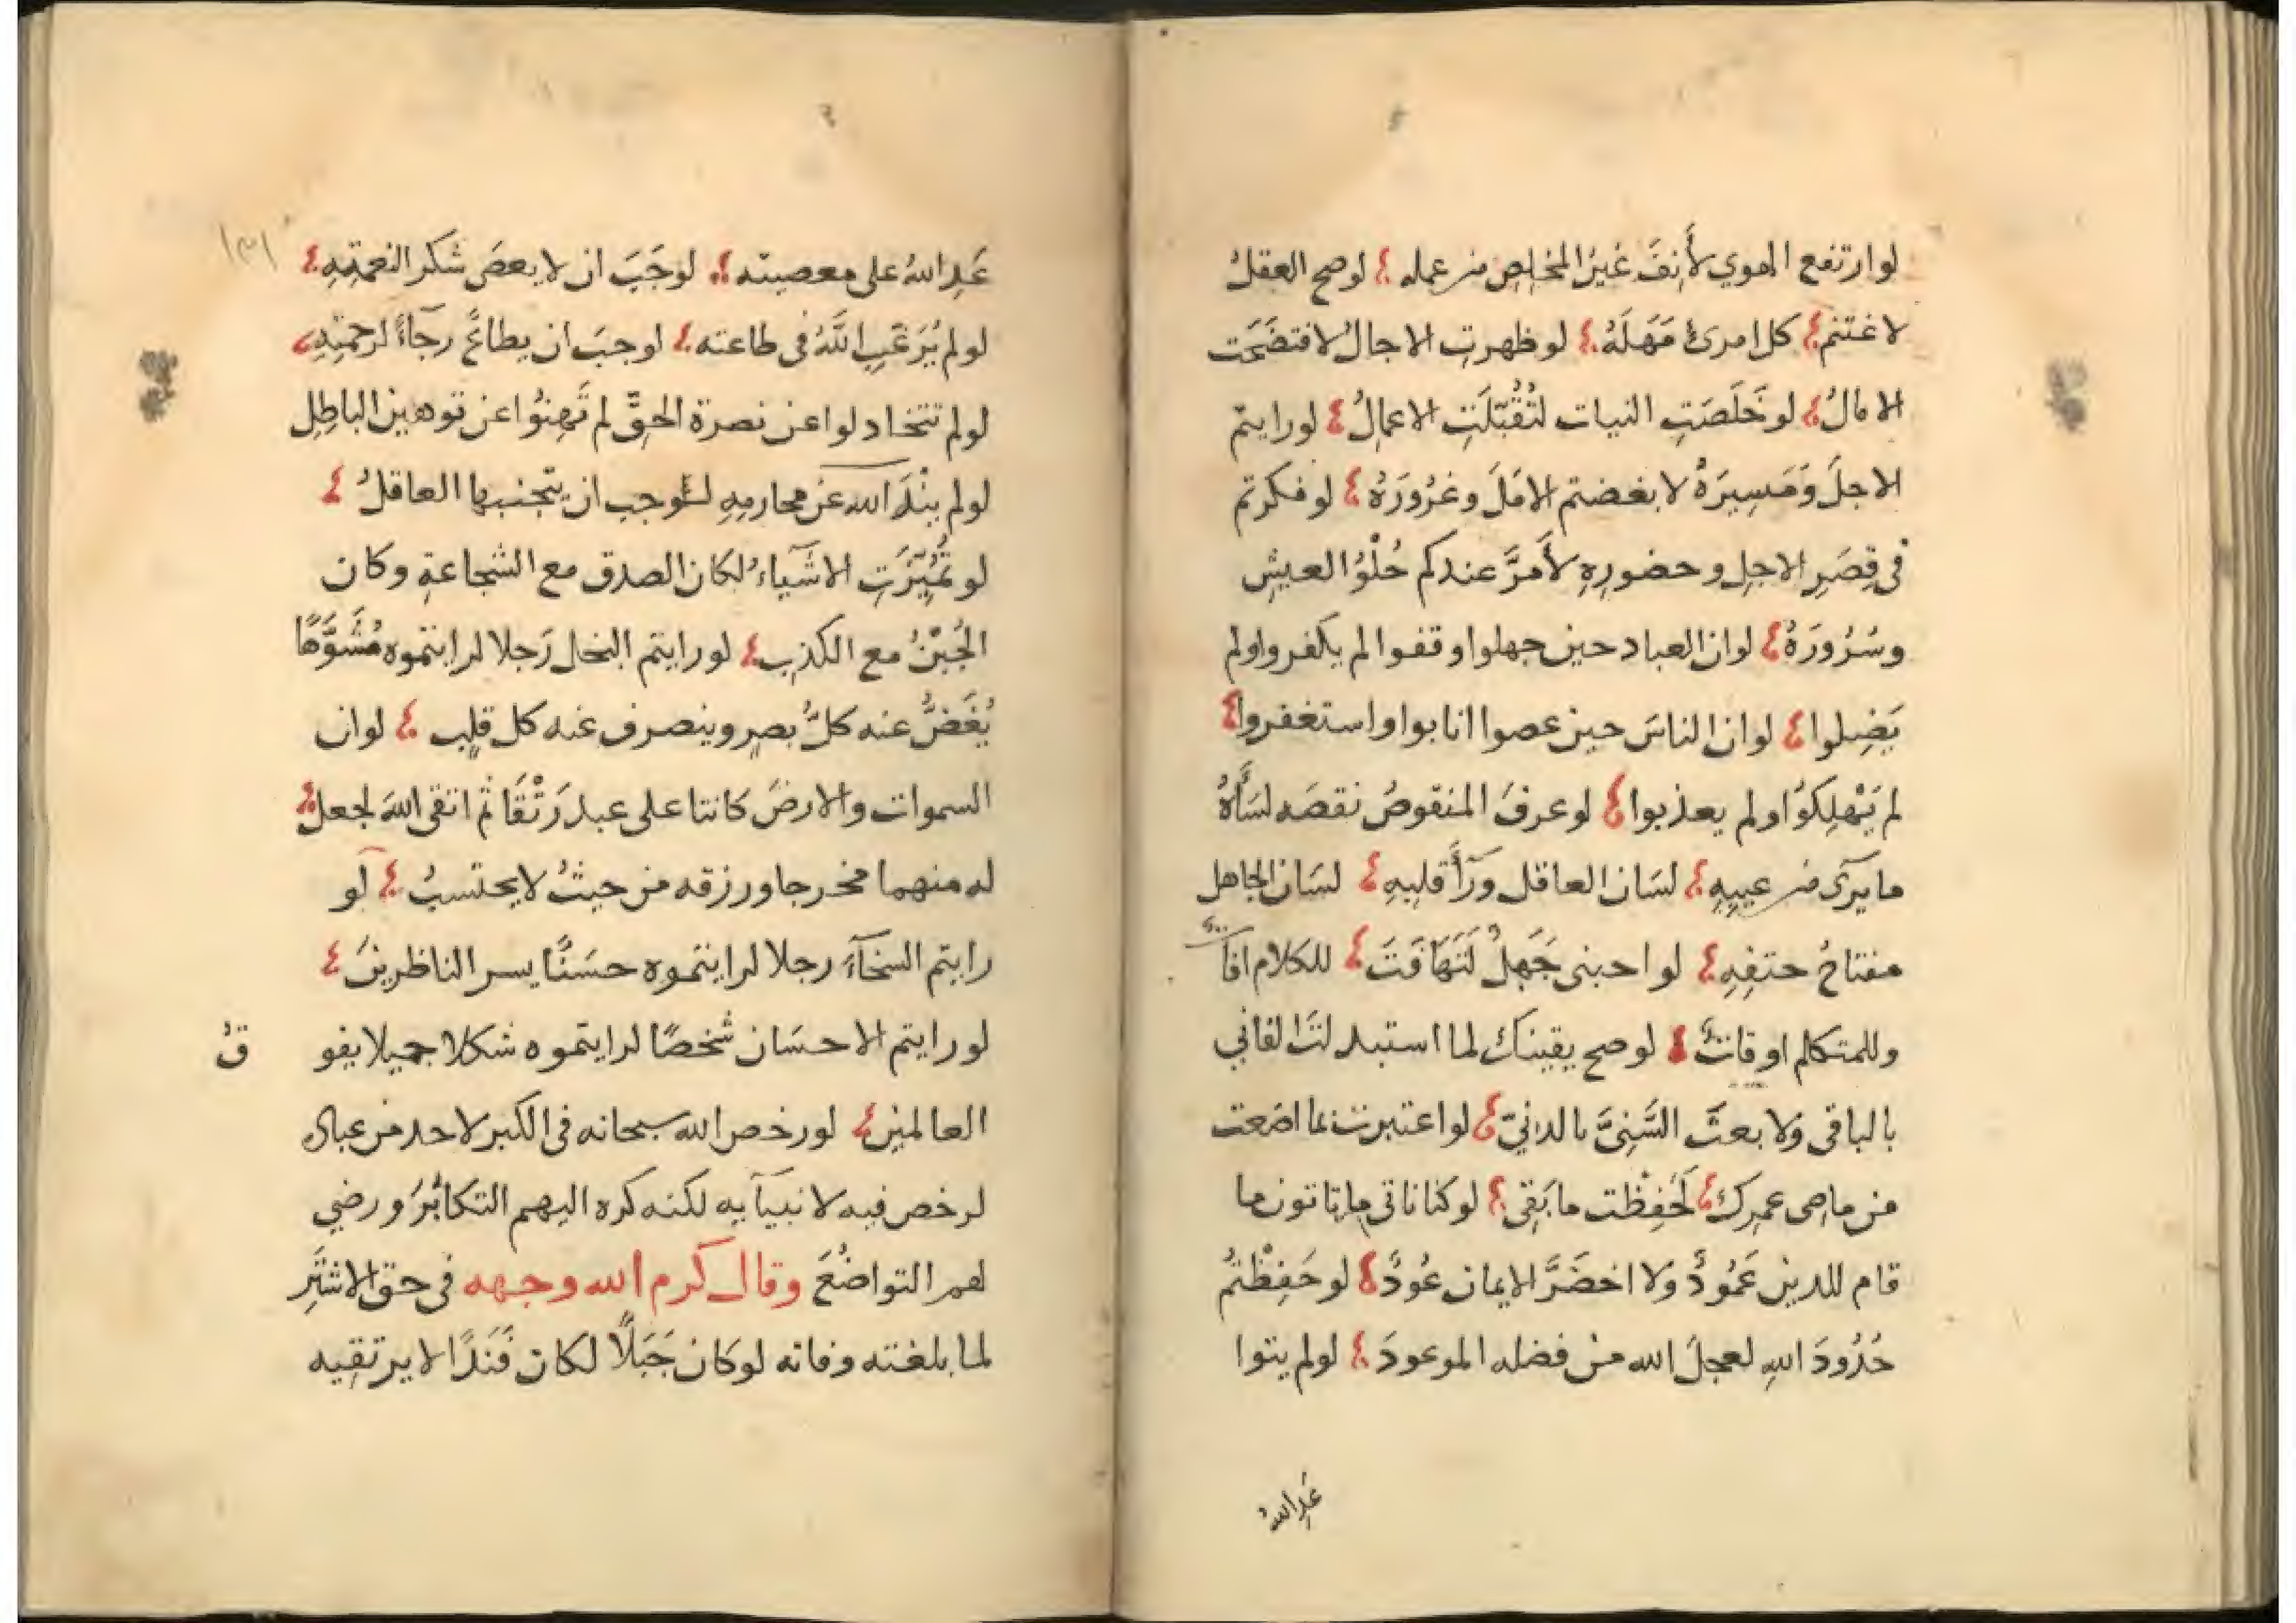 لو ارتفع الهوي لأَنِفَ غيرُ المخلِصِ من عمله لو صح العقلُ
لاغتنم كل امرئ مَهَلَهُ لو ظهرتِ الاجالُ لافتضَحَت
الامالُ لو خَلَصَتِ النيات لتُقُبِّلَتِ الاعمالُ لو رايتم
الاجلَ وَمَسِيرَهُ لابغضتم الامَلَ وغرُورَهُ لو فكرتم
فى قِصَرِ الاجلِ وحضورِهِ لأَمَرَّ عندكم حُلْوُ العيشِ
وسُرُورَهُ لو ان العباد حين جهلوا وقفوا لم يكفروا ولم
يَضِلوا لو ان الناسَ حين عصوا انابوا واستغفروا
لم يَهْلِكوُا ولم يعذبوا لو عرفَ المنقوصُ نقصَه لسَأَهُ
ما يرَى من عيبِهِ لسَان العاقل ورَأَ قلبِهِ لسَان الجاهل
مفتاحُ حتفِهِ لو احبنى جَبَلٌ لَتَهَافَتَ للكلام افات
وللمتكلم اوقاتٌ لو صح يقينك لما استبدلتَ الفاني
بالباقى وَلا بعتَ السَّنِىَّ بالدنيّ لو اعتبرت بما اضَعت
من ماضى عمرِك لَحَفِظْت ما بَقِى لو كنا ناتى ما تاتون ما
قام للدين عَمُودٌ وَلا اخضَرَّ الايمان عُودٌ لو حَفِظْتُم
حُدُودَ اللهِ لعجلَ الله من فضله الموعودَ لو لم يتوا
عَدِ اللهُ
عَدِ اللهُ على معصيته لوجَبَ ان لا يعصَى شكر النعمتِهِ
لو لم يُرَغِّبِ اللَّهُ فى طاعته لوجبَ ان يطاعَ رجآءً لرحمتِهِ
لو لم تتخاد لوا عن نصرة الحقِّ لم تَهِنُوا عن توهين الباطِلِ
لو لم ينْهَ الله عن محارمِهِ لوجب ان يتجنبها العاقلُ
لو تُمُيِّزَتِ الاشَيآءُ لكان الصدق مع الشجاعةِ وكان
الجُبْنُ مع الكذِبِ لو رايتم البخل رَجلا لرايتموه مُشَوَّهًا
يُغَضُّ عنه كلُّ بصرٍ وينصرف عنه كل قلبٍ لو ان
السموات والارضَ كانتا على عبد رَتْقًا ثم اتقى اللهَ لجعل
له منهما مخرجا ورزقه من حيثُ لا يحتسبُ لو
رايتم السخآءَ رجلا لرايتموه حسَنًا يسر الناظرينَ
لو رايتم الاحسَان شخصًا لرايتموه شكلا جميلا يفو قُ
العالمين لو رخص الله سبحانه فى الكبر لاحد من عباده
لرخص فيه لانبيآيه لكنه كره اليهم التكابُرَ ورضي
لهم التواضُعَ وقال كرم الله وجهه فى حق الاشتَرِ
لما بلغته وفاته لو كان جَبَلًا لكان فَنَدًا لا يرتقِيه